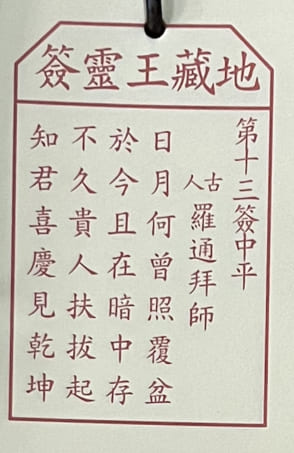 地藏王靈簽
第十三簽中平
古人羅通拜師
日月何曾照覆盆
於今且在暗中存
不久貴人扶拔起
知君喜慶見乾坤